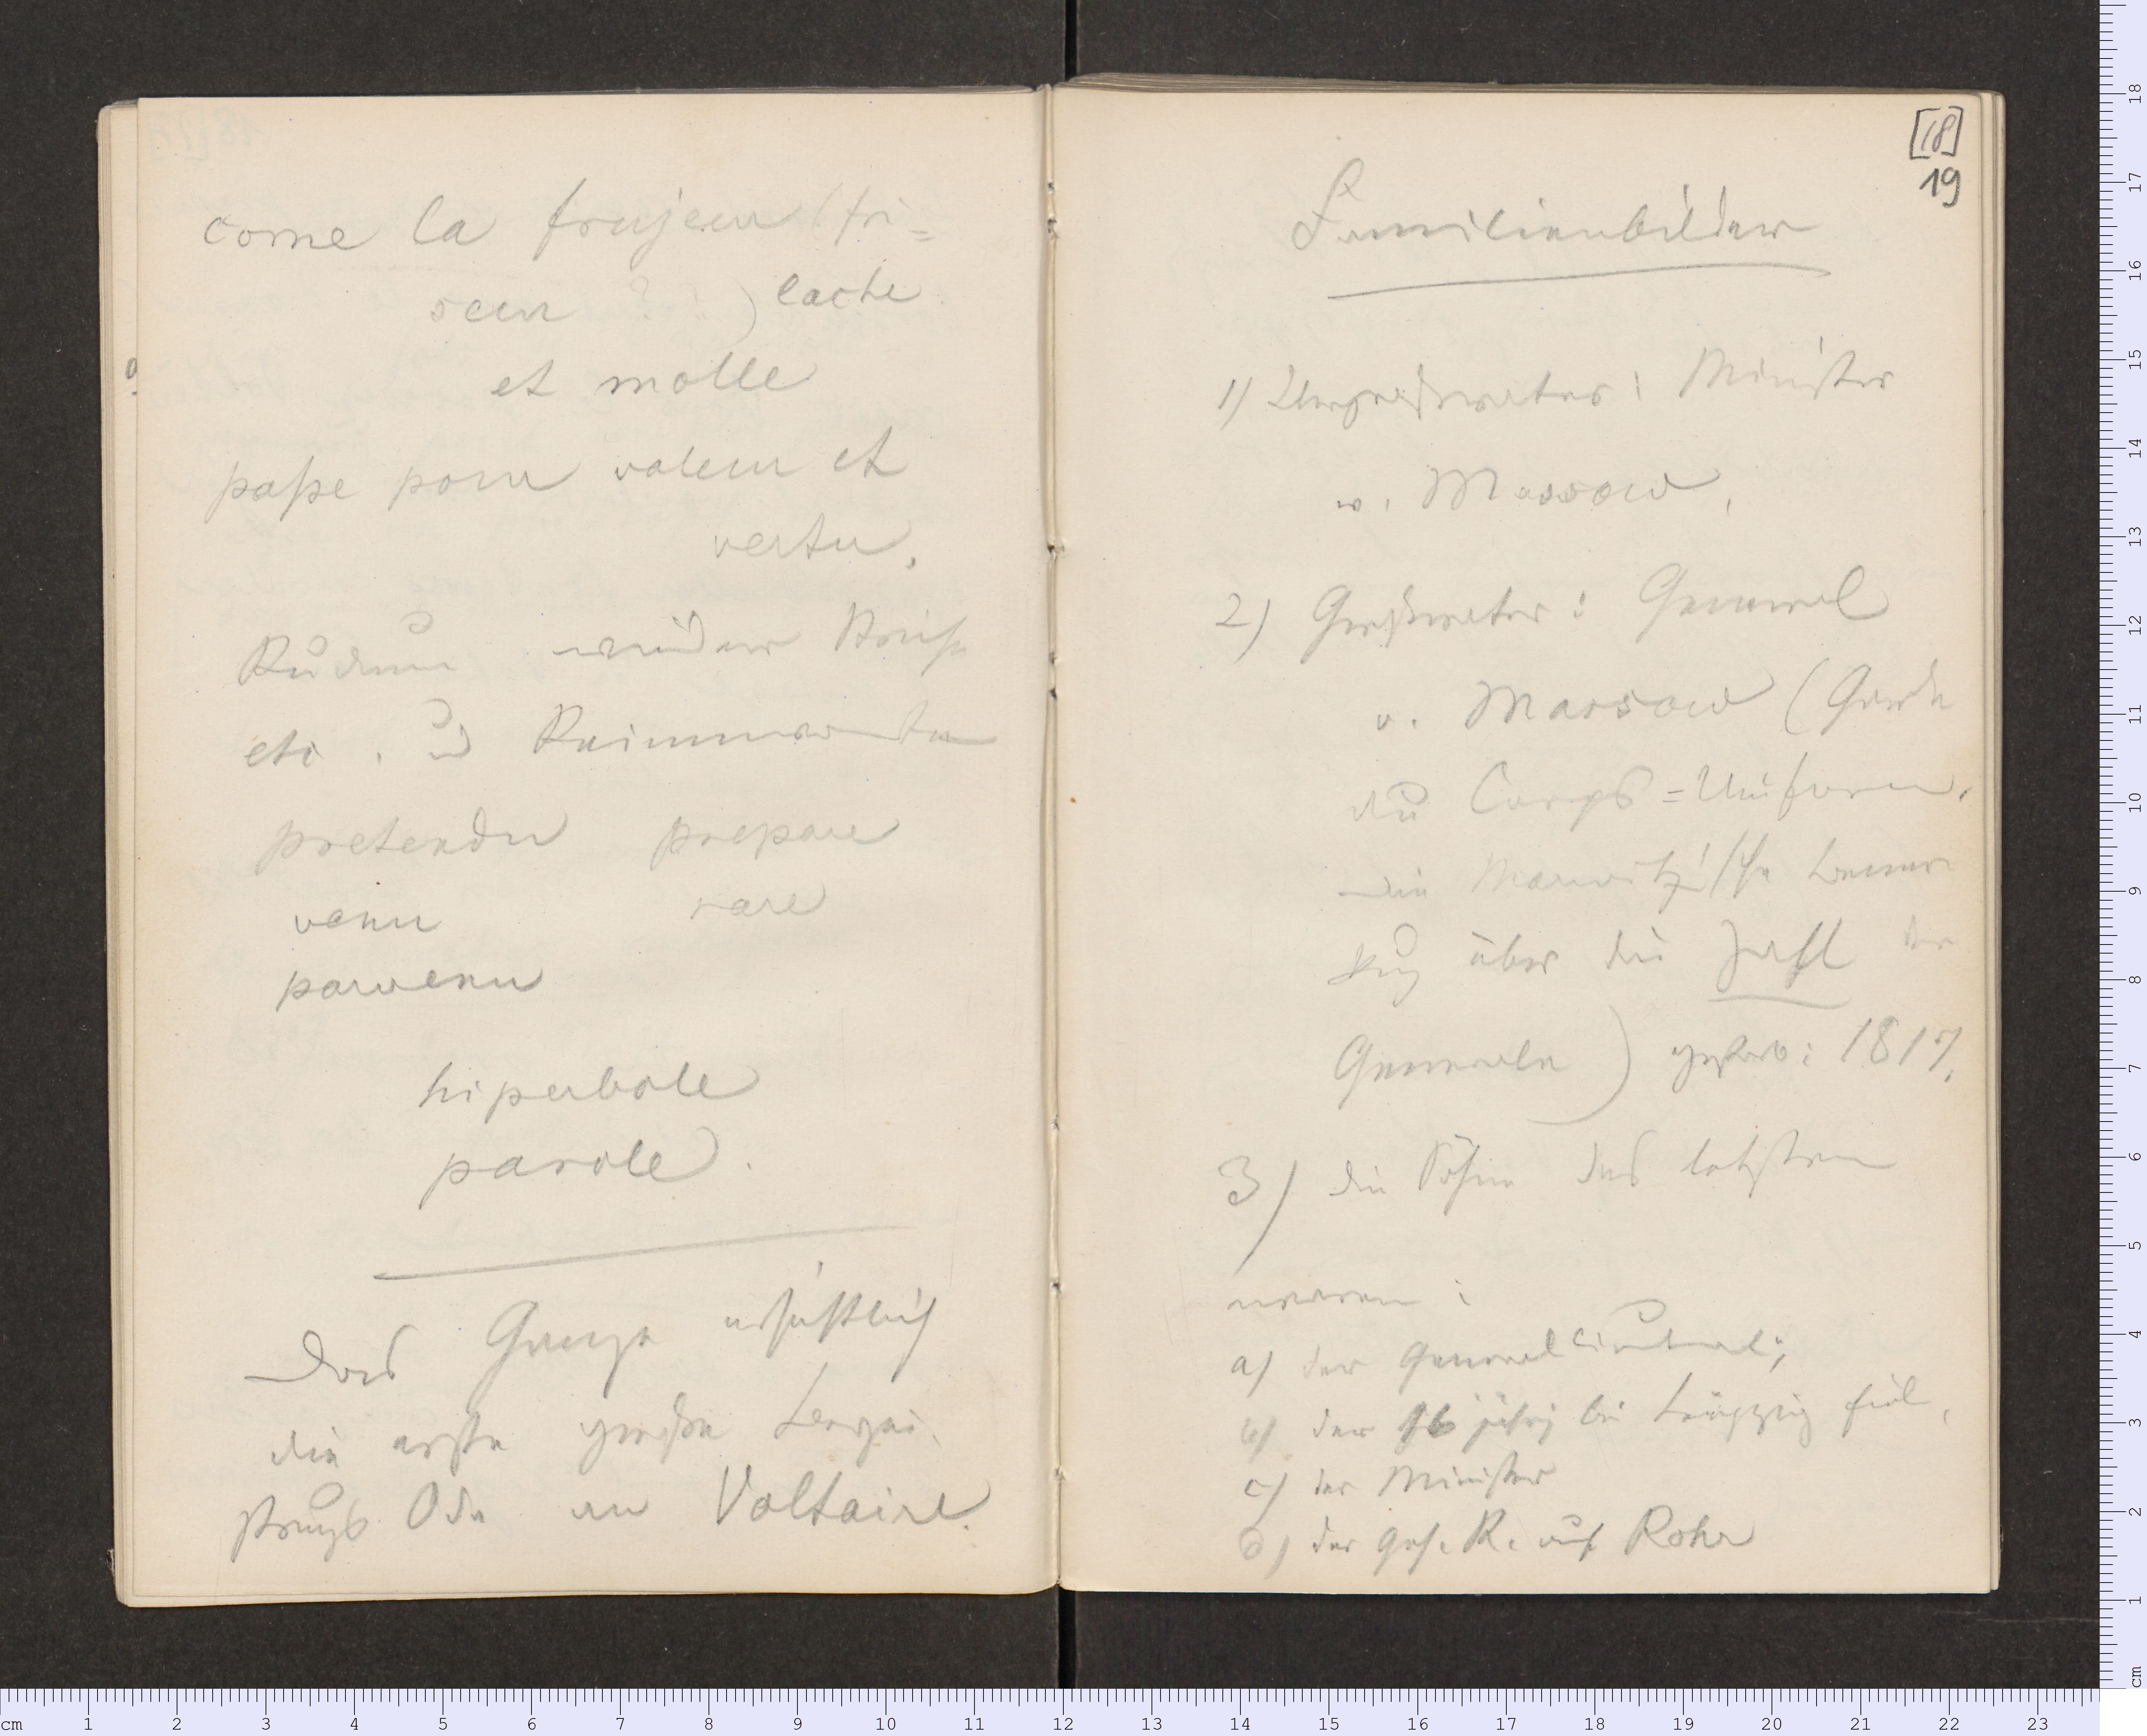 come la frujeur (fri=
seur ? ) lache
et molle
paſse pour valeur et
vertu.
Rudum wieder
etc. u Reimworten
pretendu prepare
venu rare
parvenu
hiperbole
parole.
Das Ganze ersichtlich
die erste große
Ode an Voltaire.
[18]
19
Familienbilder
1) Urgroßvater: Minister
v. Massow.
2) Großvater: General
v. Massow (Garde
du Corps=Uniform.
die Marwitz'sche Bemer
kung über die Zahl der
Generale) gestorb: 1817.
3) die Söhne des letztren
waren:
a) der Generallieutenant;
b) der 16 jährig bei Leipzig fiel,
c) der Minister
d) der Geh. R. auf Rohr